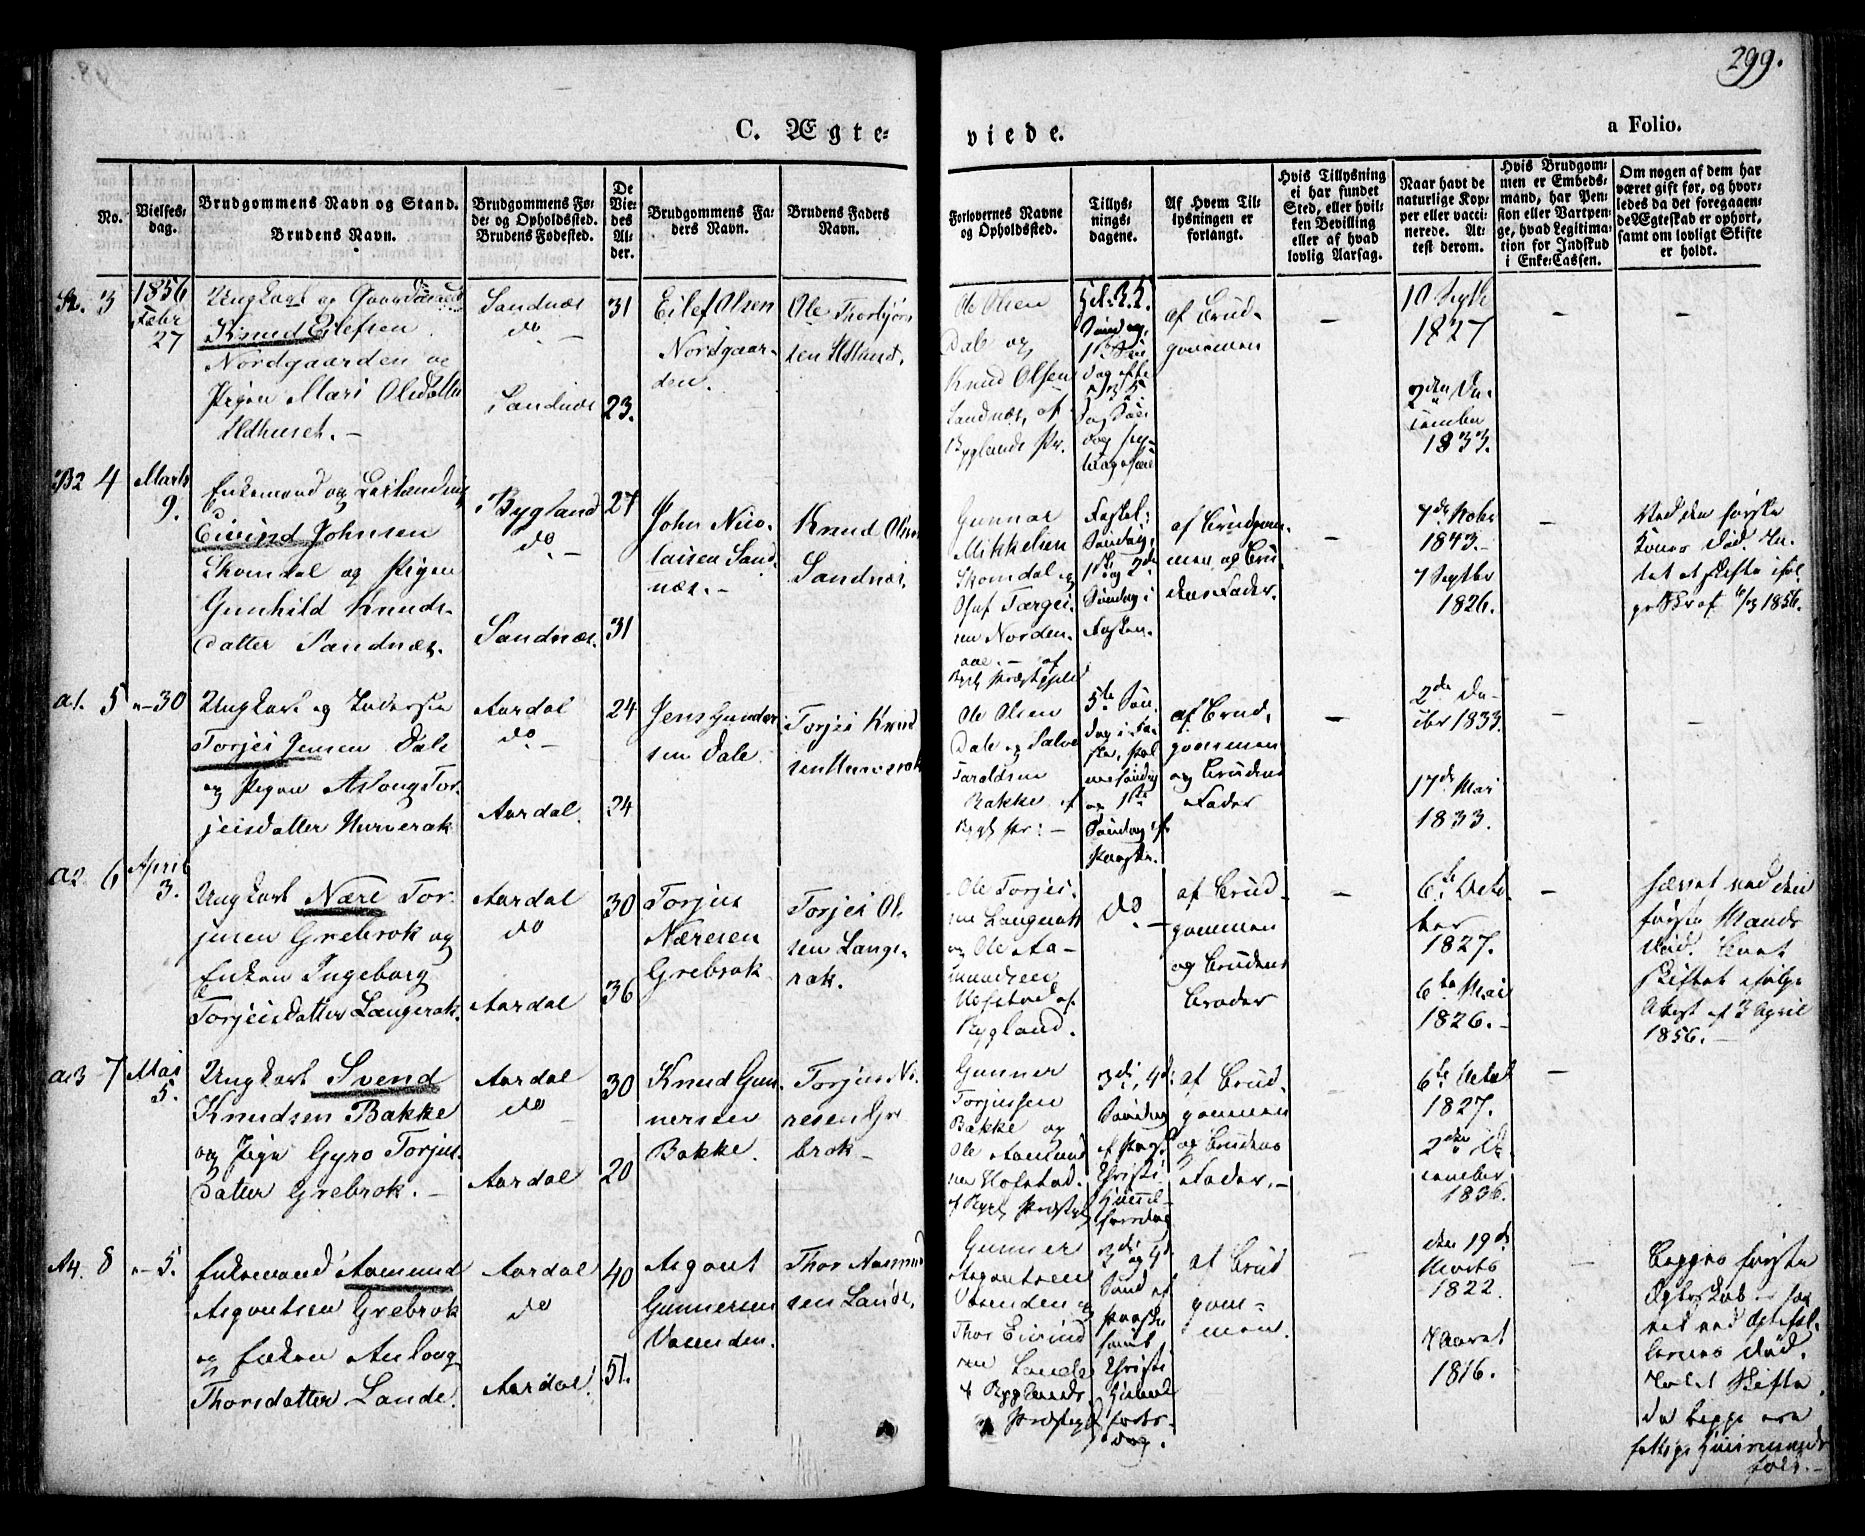 299.
C. Ægte-
viede.
a Folio.
No.
Vielses-
dag.
Brudgommens Navn og Stand.
Brudens Navn.
Brudgommens Fø-
de- og Opholdssted.
Brudens Fødested.
De
Vie-
des
Al-
der.
Brudgommens Fa-
ders Navn.
Brudens Faders
Navn.
Forlovernes Navne
og Opholdssted.
Tillys-
nings-
dagene.
Af Hvem Til-
lysningen er
forlangt.
Hvis Tillysning
ei har fundet
Sted, eller hvil-
ken Bevilling
eller af hvad
lovlig Aarsag.
Naar havt de
naturlige Kop-
per eller vacci-
nerede. At-
test derom.
Hvis Brudgom-
men er Embeds-
mand, har Pen-
sion eller Vartpen-
ge, hvad Legitima-
tion for Indskud
i Enke-Cassen.
Om nogen af dem har
været gift før, og hvor-
ledes da det foregaaen-
de Ægteskab er ophørt,
samt om lovligt Skifte
er holdt.
3
1856
Febr
27
Ungkarl og Gaardmand
Knud Eilefsen
Nordgaarden og
Pigen Mari Olsdatter
Udhuset. -
Sandnæs
do -
Sandnæs
31
23.
Eilef Olsen
Nordgaar-
den.
Ole Thorbjørn
sen
Ole Olsen
Dale og
Knud Olsen
Sandnæs, af
Byglands Pr.
af Brud-
gommen
-
10 Septbr
1827
2den De-
cember
1833.
B2 4
Marts
9.
Enkemand og
Eivind Johnsen
Skomdal og Pigen
Gunhild Knuds-
datter Sandnæs.
Bygland
do. -
Sandnæs.
27
31
John Nico-
laisen Sand-
næs. -
Knud Olsen
Sandnæs.
Gunnar
Mikkelsen
Skomdal og
Oluf Tørgei-
sen Norden-
aae. - af
Fastel.
Søndag,
1ste og 2de
Søndag i
Fasten.
af Brudgom-
men, og Bru-
dens Fader.
-
7de Nobr
1843. -
7 Septbr
1826.
-
Ved den første
Kones Død.
1856.
a1. 5
" - 30
Ungkarl og
Torjei Jensen Dale
og Pigen Aslaug Tor-
jeisdatter Hurverak
Aardal
do -
Aardal.
24
24
Jens Gunder
sen Dale.
Torjei Knud
sen Hurverak
Ole Olsen
Dale og Salve
Taraldsen
Bakke af
Bygl. Pr: -
5te Søn-
dag i Fa-
ste, Pal-
mesøndag
og 1ste
Søndag ef.
Paaske.
af Brud-
gommen
og Brudens
Fader
-
2de De-
cbr 1833.
17de Mai
1833.
-
-
a2. 6
April
3.
Ungkarl Næri Tor-
jusen Grebrok og
Enken Ingeborg
Torjeisdatter Langerak.
Aardal
do
Aardal
30
36
Torjus
Næresen
Grebrok
Torjei Ol-
sen Lange-
rak.
Ole Torjei-
sen Langerak
og Ole Aa-
mundsen
Hofstad af
Bygland.
do. -
af Brud-
gommen
og Brudens
Broder
-
6te Octo-
ber
1827.
6te Mai
1826. -
-
hævet ved den
første Mands
Død.
Skiftet ifølge
Attest af 3 April
1856. -
a.3 7
Mai
5.
Ungkarl Svend
Knudsen Bakke
og Pige Gyro Torjus-
datter Grebrok. -
Aardal
do -
Aardal
30
20
Knud Gun-
nersen
Bakke.
Torjus Næ-
resen Gre
brok -
Gunner
Torjussen
Bakke og
Ole Aamund
sen Hofstad.
3di, 4de
Søndag
ef Paas.
Christi
af Brud-
gommen
og Brudens
Fader. -
6te Octob
1827.
2den De-
cember
1836.
-
A4. 8
" - 5.
Enkemand Aamund
Asgautsen Grebrok
og Enken Aslaug
Thorsdatter Lande.
Aardal
do
Aardal.
40
51.
Asgaut
Gunnersen
Vasenden.
Thor Aasmund
sen Lande.
Gunner
Asgautsen
Vasenden og
Thor Eivind
sen Lande
af Byglands
Præstegj.
3die og 4de
Sønd ef
Paaske
samt
Christi
Himmel
farts-
dag.
af Brud
gom-
men.
-
den 19de
Marts
1822.
1816.
Begges første
Ægteskab er hæ-
vet ved Ægtefæl-
lernes Død.
Skifte,
da begge ere
fattige Huusmands
folk. -